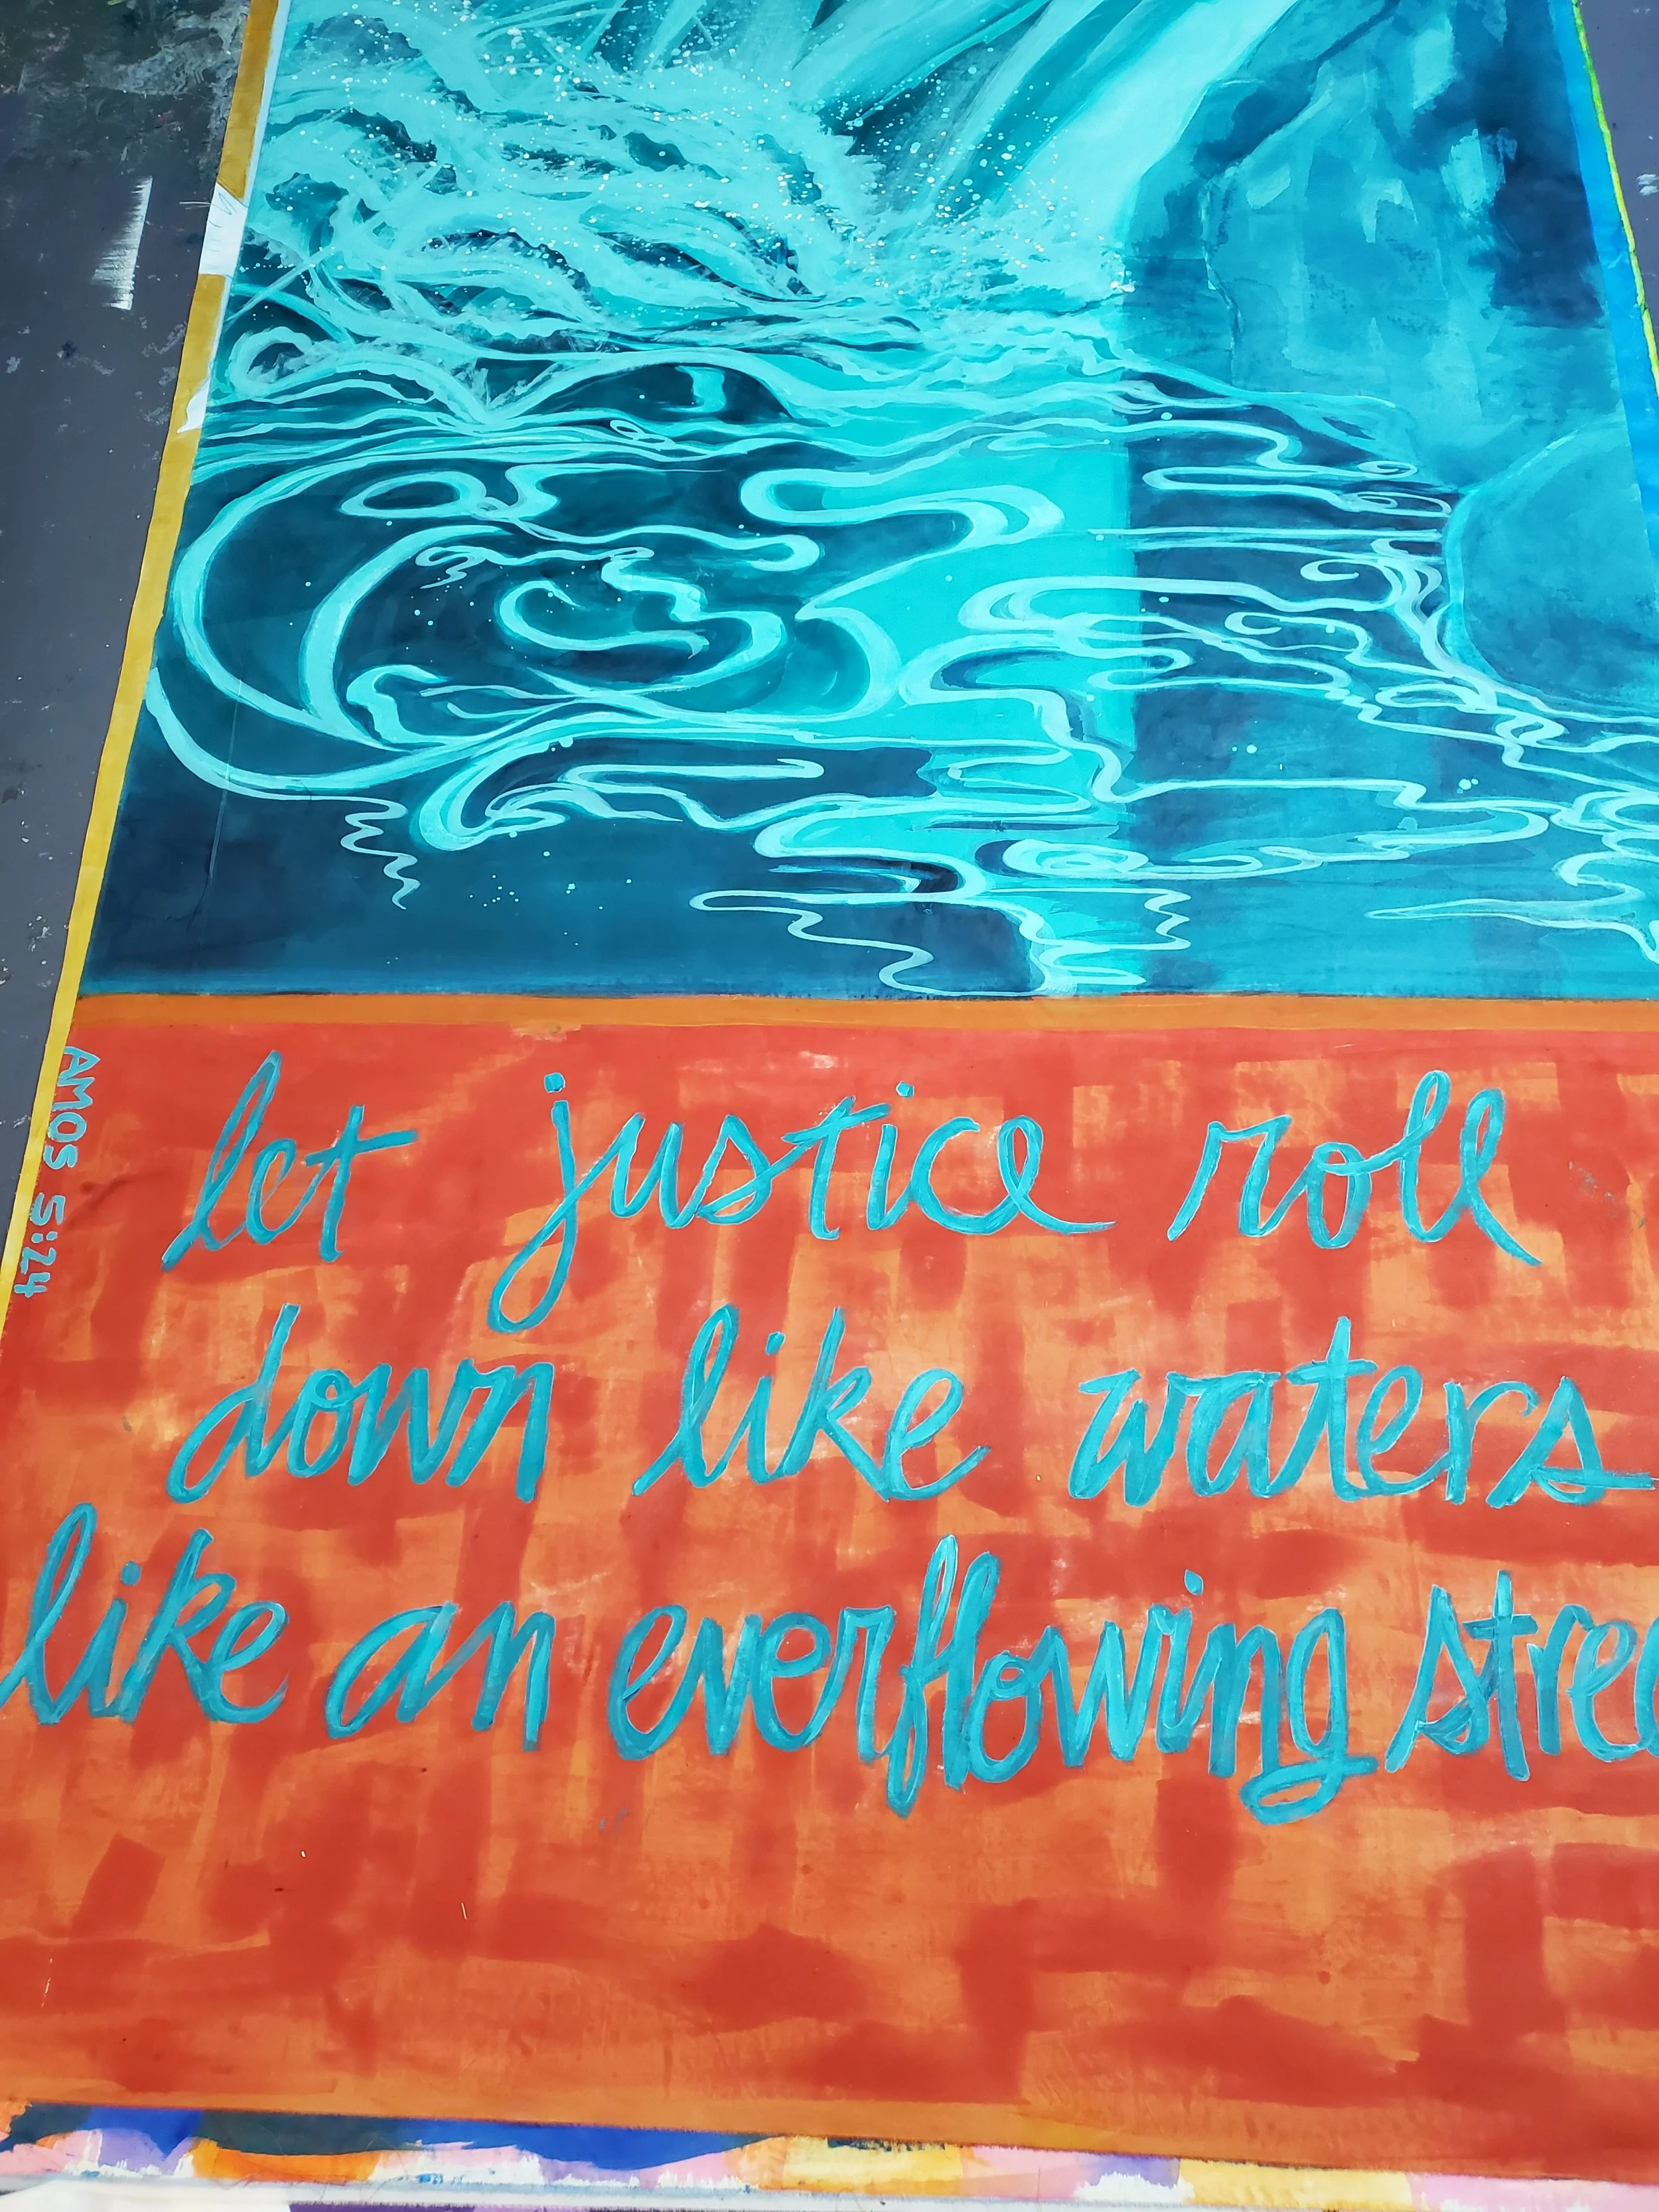 AMOS 5:24
let justice roll
down like waters
like an everflowing